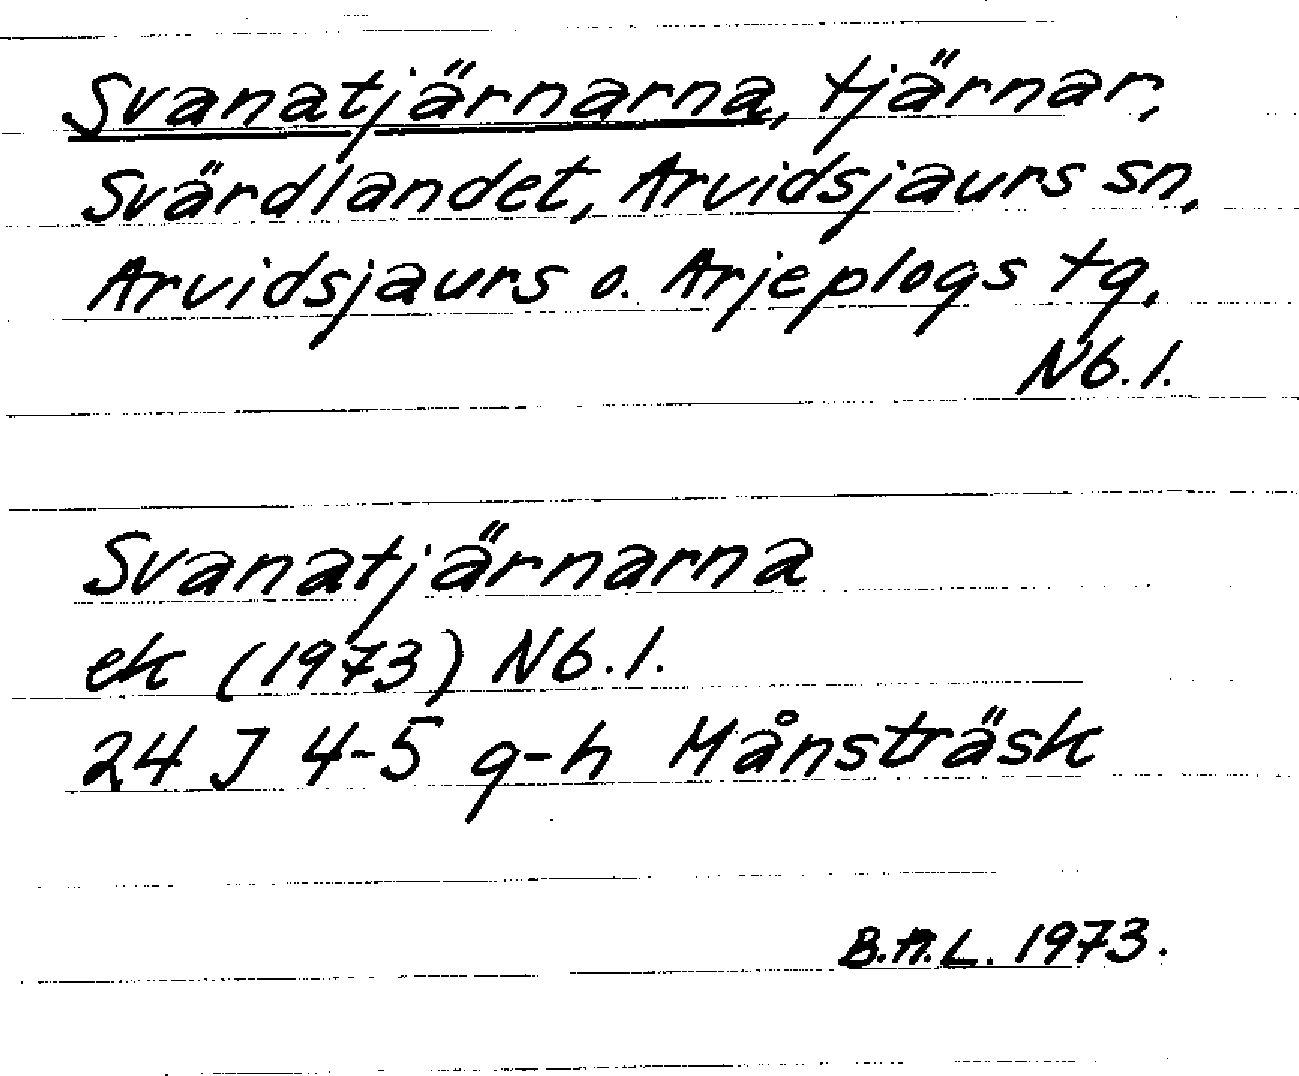 Svanatjärnarna, tjärnar,
Svärdlandet, Arvidsjaurs sn,
Arvidsjaurs o. Arjeplogs tg.
Nb. l.
Svanatjärnarna
ek (1973) Nb. l.
24 J 4-5 g-h Månsträsk
B.A.L. 1973.